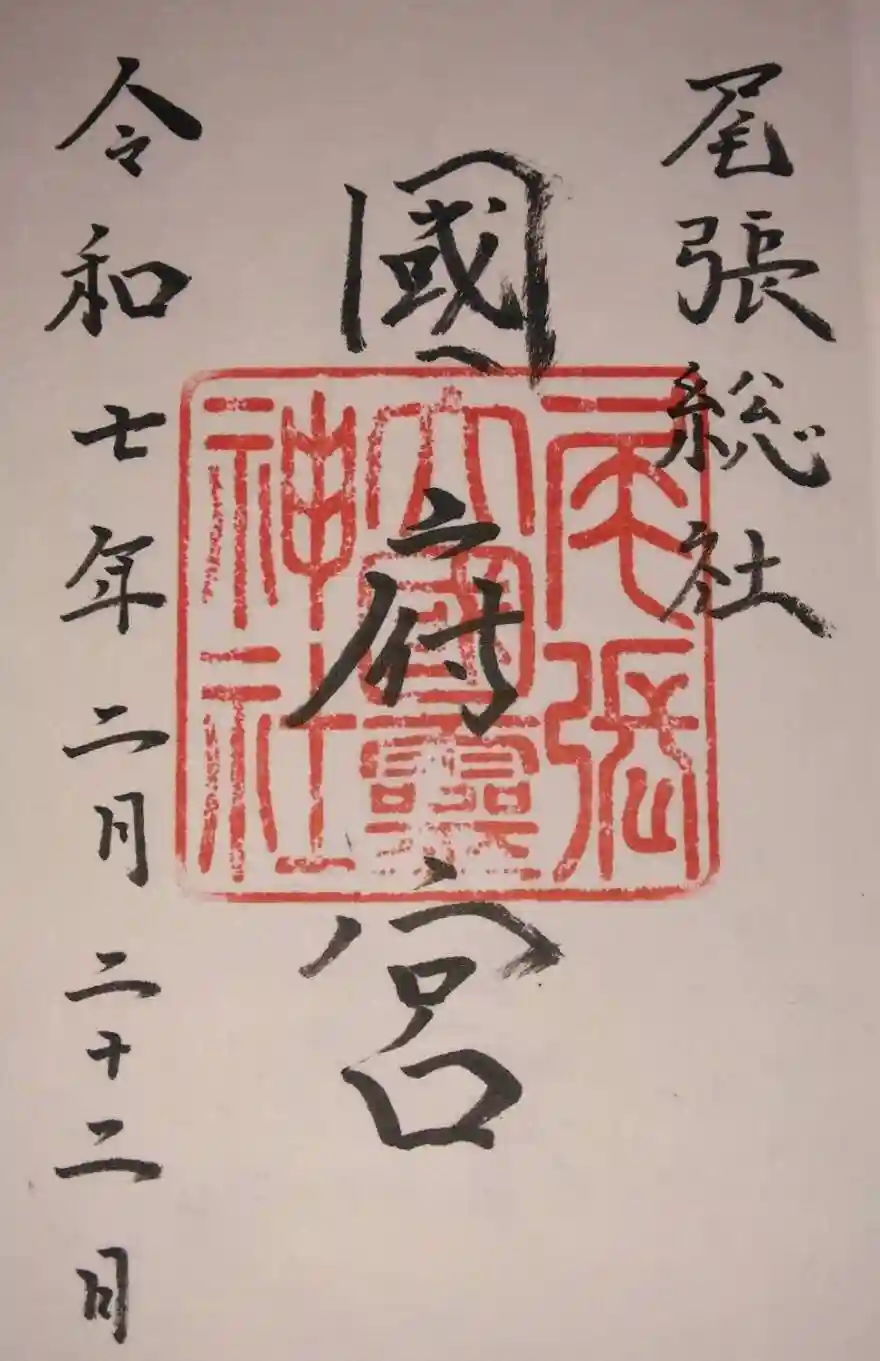 尾張総社
國府宮
令和七年二月二十二日
尾張
大國霊
神社